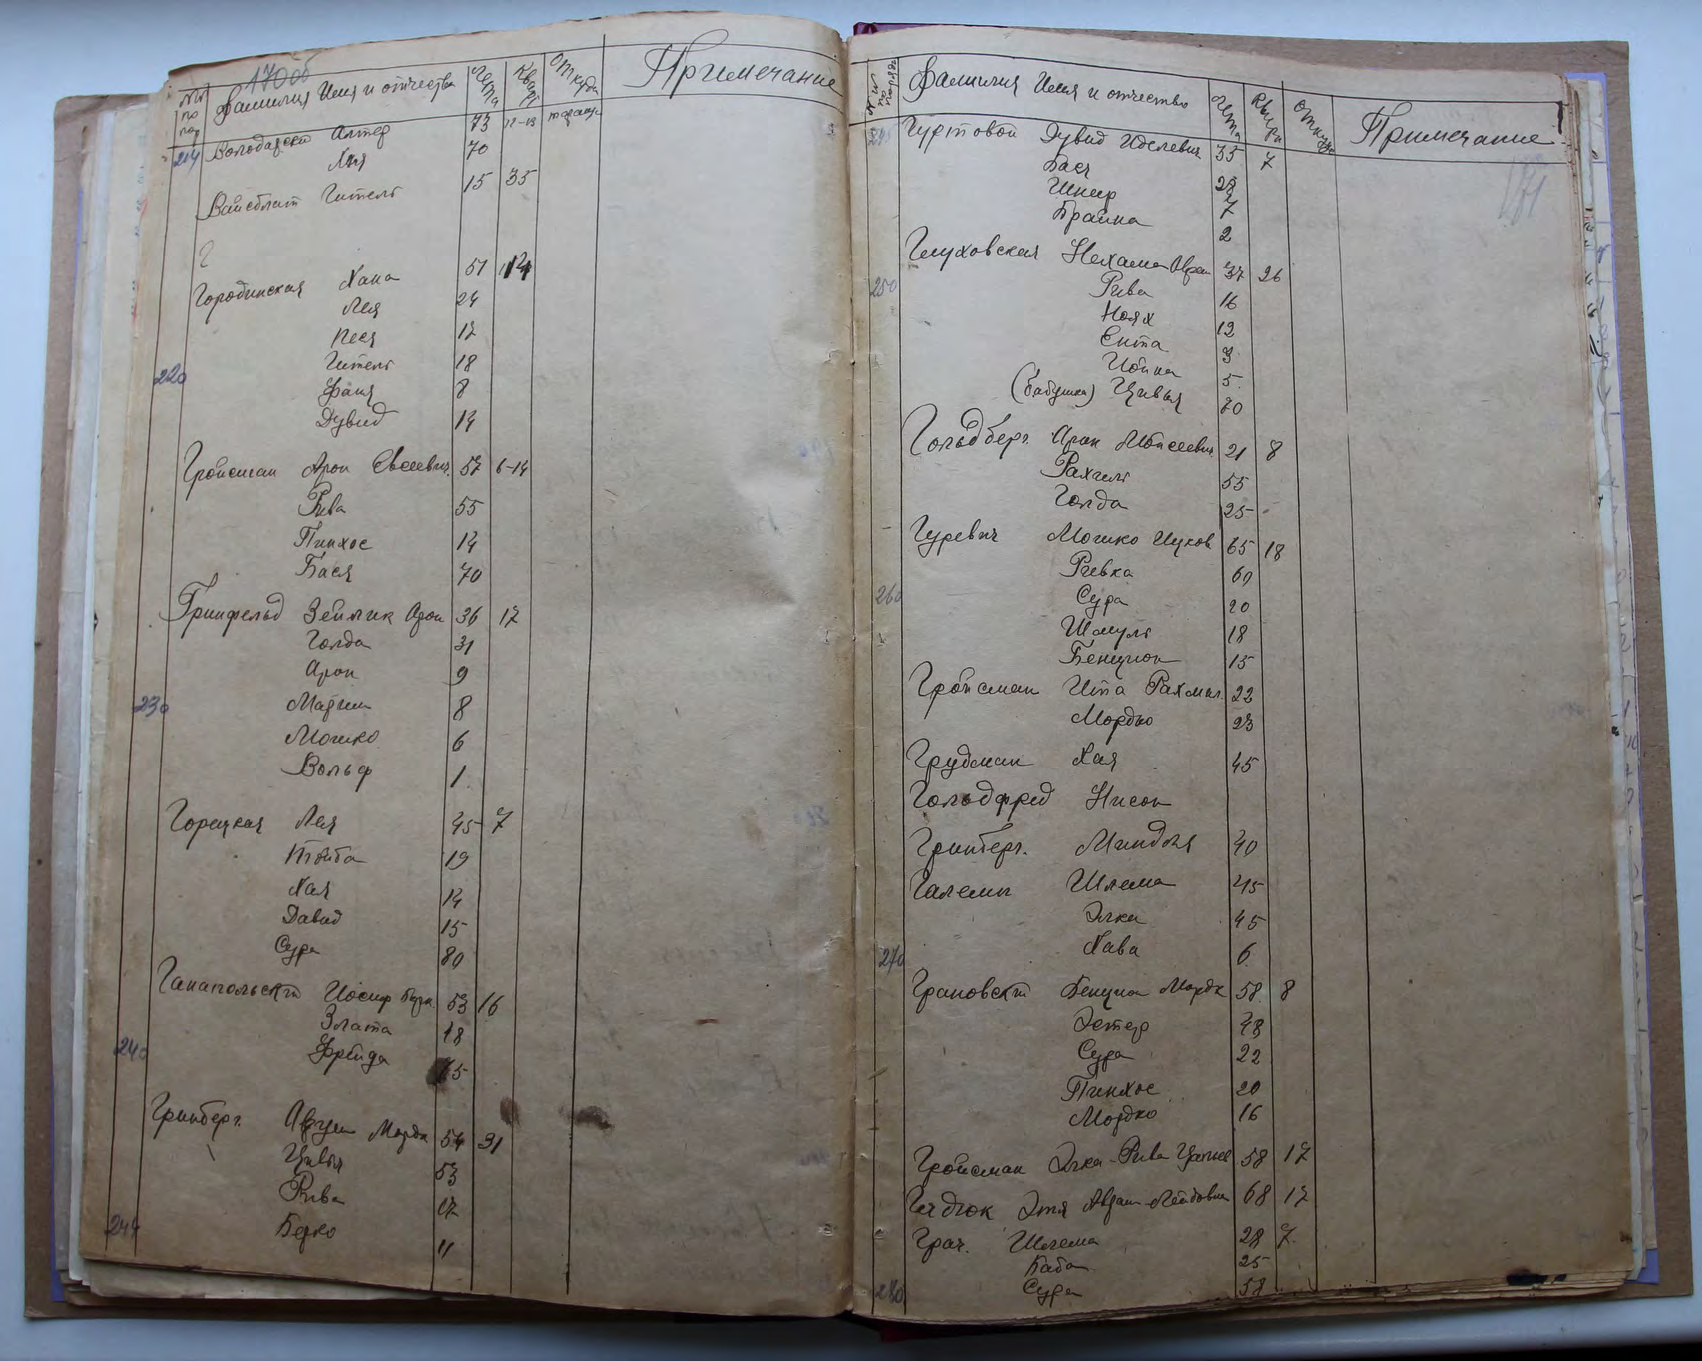 170об
№№ по пор Фамилия Имя и отчества Лета Кварт Откуда Примечание
214 Володарский Алтер 73 12-13 таращи
Хая 70
Вайсблит Гитель 15 35
Г
Городинская Хана 51 14
Лея 24
Песя 17
220 Гитель 18
Фаня 8
Дувид 14
Гройсман Арон Евсеевич 57 6-14
Рива 55
Пинхос 14
Бася 70
Гринфельд Зейлик Арон 36 17
Голда 31
Арон 9
230 Марим 8
Мошко 6
Вольф 1
Горецкая Лея 45 7
Тойба 19
Хая 14
Давид 15
Сура 80
Ганапольский Иосиф 53 16
Злата 18
240 Фрейда 65
Гринберг. Аврум Мордк 54 31
Цивья 53
Рива 17
244 Берко 11
№№ по порядк Фамилия Имя и отчество Лета Кварт Откуда Примечание
171
245 Гуртовой Дувид Иделевич 35 7
Бася
Шнеир 7
Брайна 2
Глуховская Нехама Аврам 37 26
250 Рива 16
Ноях 12
Ента 3
Иойна 5
(бабушка) Цивья 70
Гольдберг. Арон Мойсеевич 21 8
Рахиль 55
Голда 25
Гуревич Мошко Ицков 65 18
Ривка 60
260 Сура 20
Шмуль 18
Бенцион 15
Гройсман Ита Рахмил. 22
Мордко 23
Грубман Хая 45
Гольдфред Нисон
Гринберг. Миндля 40
Галемы Шлема 45
Элка 45
270 Хава 6
Грановский Бенцион Мордк 58 8
Эстер 48
Сура 22
Пинхос 20
Мордко 16
Гройсман Элка-Рива 58 17
Этя Аврам-Лейбовна 68 17
Грач. Шлема 28 7
Баба 25
280 Сура 58